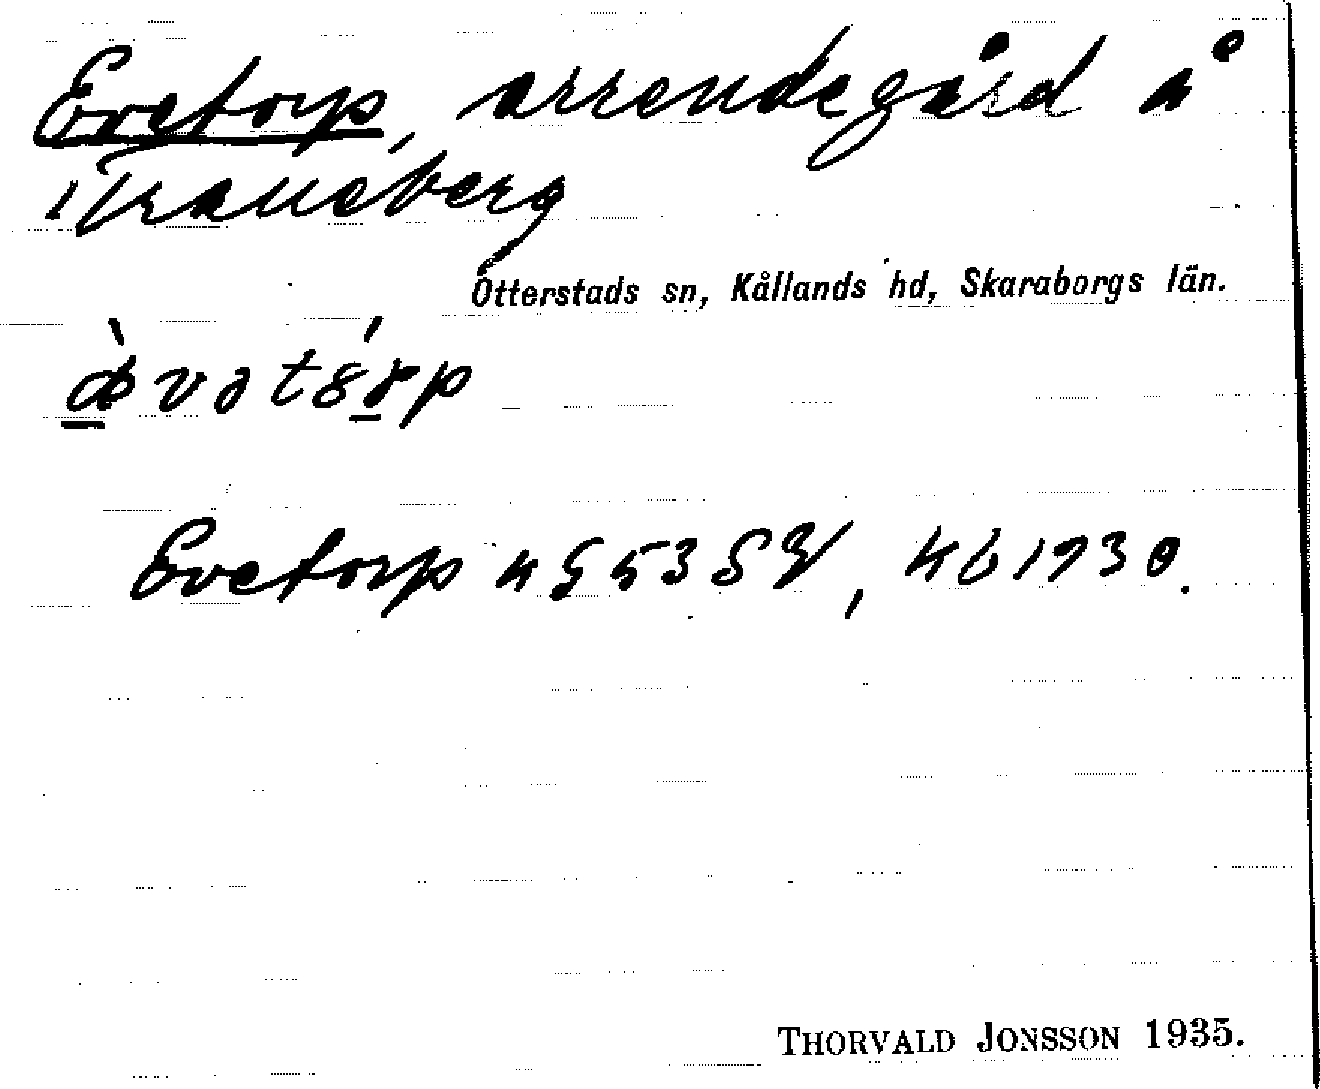 Evetorp, arrendegård å
Traneberg
Otterstads sn, Kållands hd, Skaraborgs län.
Evetorp kb 1930.
THORVALD JONSSON 1935.